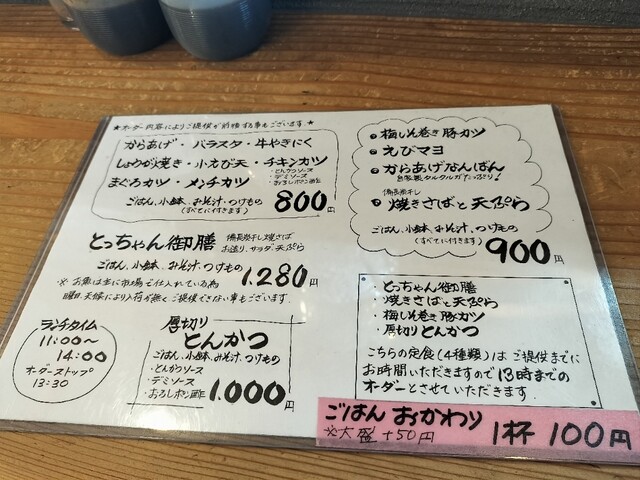 ★オーダー内容によりご提供が前後する事もございます。★
からあげ・バラスタ・牛やきにく
しょうが焼き・小えび天・チキンカツ
・とんかつソース
・デミソース
・おろしポン酢
まぐろカツ・メンチカツ
ごはん、小鉢、みそ汁、つけもの
(すべてに付きます)
800円
梅しそ巻き豚カツ
えびマヨ
からあげなんばん
自家製タルタルがたっぷり!
備長炭干し
焼きさばと天ぷら
ごはん、小鉢、みそ汁、つけもの
(すべてに付きます)
900円
とっちゃん御膳
備長炭干し焼さば
お造り、サラダ、天ぷら
ごはん、小鉢、みそ汁、つけもの
1.280円
※お魚は主に市場で仕入れている為
曜日、天候により入荷が無くご提供できない事もございます。
ランチタイム
11:00〜
14:00
オーダーストップ
13:30
厚切り
とんかつ
ごはん、小鉢、みそ汁、つけもの
・とんかつソース
・デミソース
・おろしポン酢
1.000円
・とっちゃん御膳
・焼きさばと天ぷら
・梅しそ巻き豚カツ
・厚切りとんかつ
こちらの定食(4種類)はご提供までに
お時間いただきますので13時までの
オーダーとさせていただきます。
ごはんおかわり
※大盛+50円
1杯100円